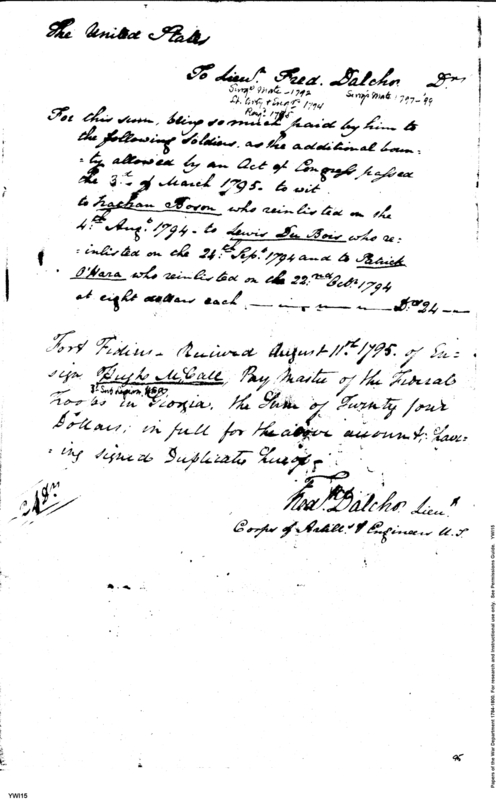 The United States
To Lieut. Fred. Dalcho Drs
Surgs Mate - 1792 Surgs Mate 1797-'99
Lt. Arty & Engrs 1794
For this sum, being so much paid by him to
the following soldiers, as the additional boun=
=ty allowed by an Act of Congress passed
the 3d. of March 1795. to wit
to Nathan Boson who reinlisted on the
4th Augt. 1794 - to Lewis Du Bois who re=
=inlisted on the 24th Sept. 1794 and to Patrick
O'Hara who reinlisted on the 22nd Octr. 1794
at eight dollars each Drs 24
Fort Fidius - Received August 11th. 1795. of En=
sign Hugh McCall, Pay Master of the Federal
Troops in Georgia. the Sum of Twenty four
Dollars; in full for the above account; hav=
=ing signed Duplicates hereof.
24 Drs
Fredk. Dalcho Lieut
Corps of Artills. & Engineers U.S.
95
YWI15
Papers of the War Department 1784-1800. For research and instructional use only. See Permissions Guide. YWI15